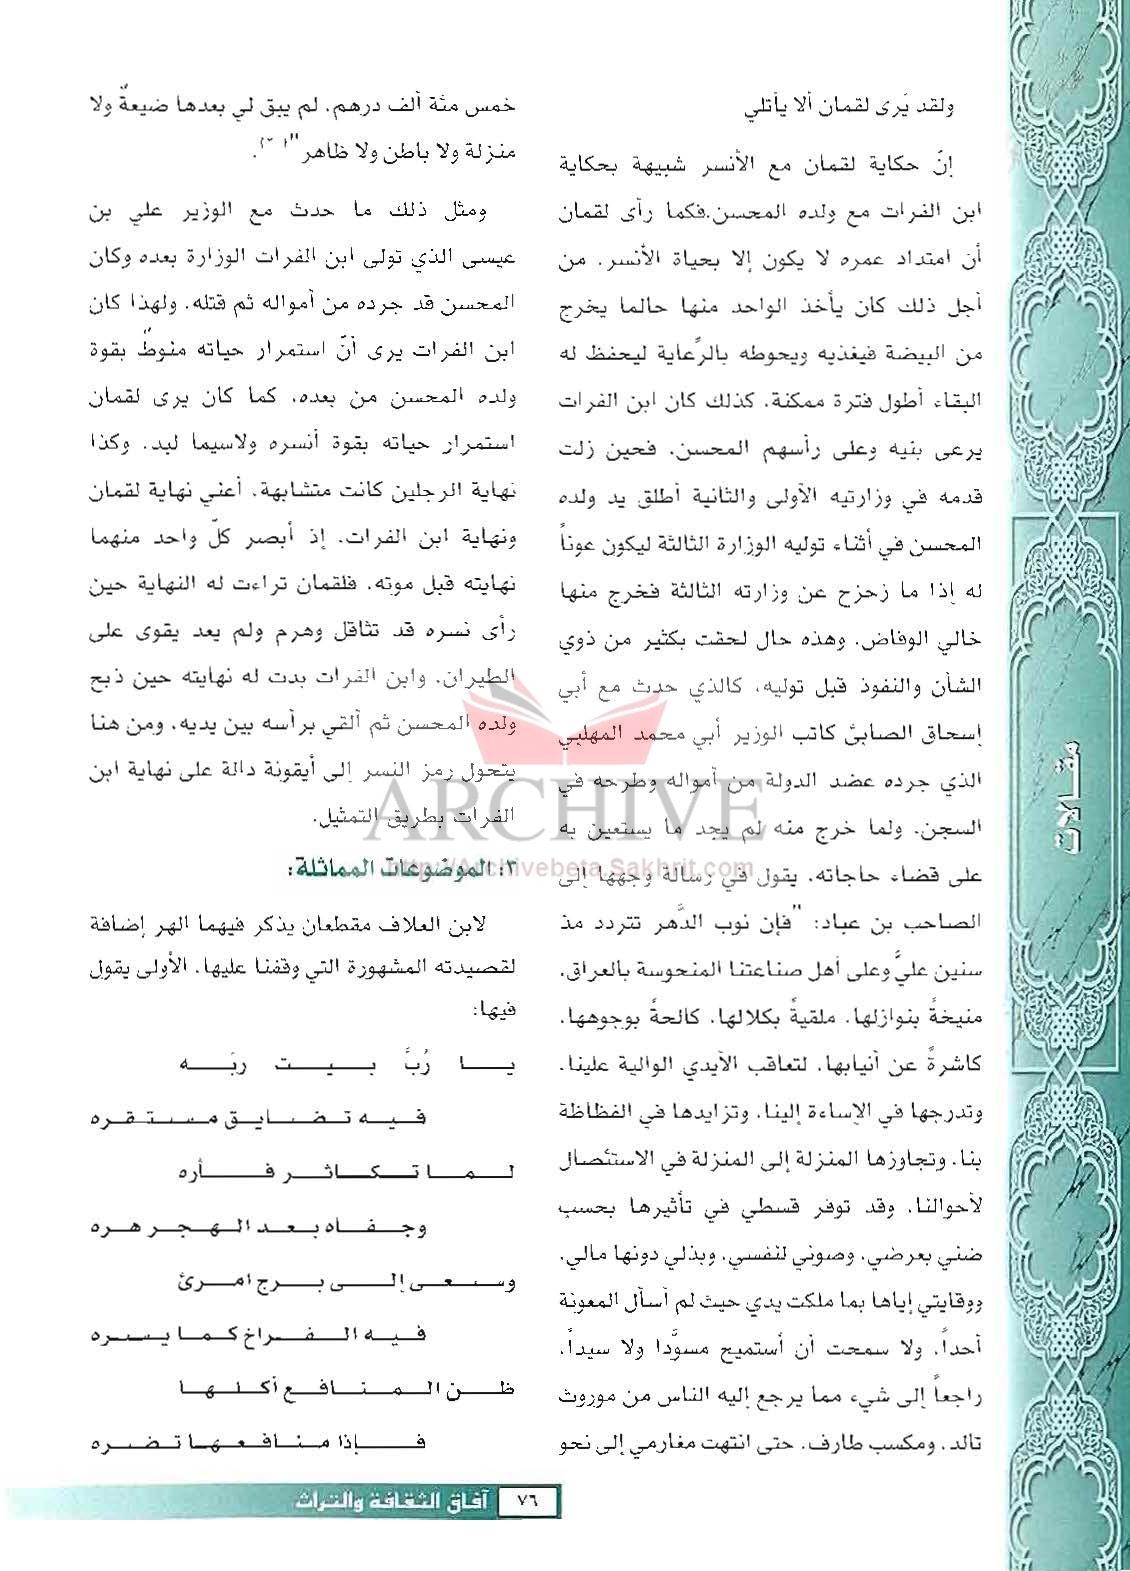 ولقد يَرى لقمان ألا يأتلي
إنّ حكاية لقمان مع الأنسر شبيهة بحكاية
ابن الفرات مع ولده المحسن.فكما رأى لقمان
أن امتداد عمره لا يكون إلا بحياة الأنسر. من
أجل ذلك كان يأخذ الواحد منها حالما يخرج
من البيضة فيغذيه ويحوطه بالرِّعاية ليحفظ له
البقاء أطول فترة ممكنة. كذلك كان ابن الفرات
يرعى بنيه وعلى رأسهم المحسن. فحين زلت
قدمه في وزارتيه الأولى والثانية أطلق يد ولده
المحسن في أثناء توليه الوزارة الثالثة ليكون عوناً
له إذا ما زحزح عن وزارته الثالثة فخرج منها
خالي الوفاض. وهذه حال لحقت بكثير من ذوي
الشأن والنفوذ قبل توليه. كالذي حدث مع أبي
إسحاق الصابئ كاتب الوزير أبي محمد المهلبي
الذي جرده عضد الدولة من أمواله وطرحه في
السجن. ولما خرج منه لم يجد ما يستعين به
على قضاء حاجاته. يقول في رسالة وجهها إلى
الصاحب بن عباد: "فإن نوب الدَّهر تتردد مذ
سنين عليَّ وعلى أهل صناعتنا المنحوسة بالعراق.
منيخةً بنوازلها. ملقيةً بكلالها. كالحةً بوجوهها.
كاشرةً عن أنيابها. لتعاقب الأيدي الوالية علينا.
وتدرجها في الإساءة إلينا. وتزايدها في الفظاظة
بنا. وتجاوزها المنزلة إلى المنزلة في الاستئصال
لأحوالنا. وقد توفر قسطي في تأثيرها بحسب
ضني بعرضي. وصوني لنفسي. وبذلي دونها مالي.
ووقايتي إياها بما ملكت يدي حيث لم أسأل المعونة
أحداً. ولا سمحت أن أستميح مسوَّدا ولا سيداً.
راجعاً إلى شيء مما يرجع إليه الناس من موروث
تالد. ومكسب طارف. حتى انتهت مغارمي إلى نحو
خمس مئة ألف درهم. لم يبق لي بعدها ضيعةٌ ولا
منزلة ولا باطن ولا ظاهر".
ومثل ذلك ما حدث مع الوزير علي بن
عيسى الذي تولى ابن الفرات الوزارة بعده وكان
المحسن قد جرده من أمواله ثم قتله. ولهذا كان
ابن الفرات يرى أنّ استمرار حياته منوطٌ بقوة
ولده المحسن من بعده. كما كان يرى لقمان
استمرار حياته بقوة أنسره ولاسيما لبد. وكذا
نهاية الرجلين كانت متشابهة. أعني نهاية لقمان
ونهاية ابن الفرات. إذ أبصر كلّ واحد منهما
نهايته قبل موته. فلقمان تراءت له النهاية حين
رأى نسره قد تثاقل وهرم ولم يعد يقوى على
الطيران. وابن الفرات بدت له نهايته حين ذبح
ولده المحسن ثم ألقي برأسه بين يديه. ومن هنا
يتحول رمز النسر إلى أيقونة دالة على نهاية ابن
الفرات بطريق التمثيل.
٣: الموضوعات المماثلة:
لابن العلاف مقطعان يذكر فيهما الهر إضافة
لقصيدته المشهورة التي وقفنا عليها. الأولى يقول
فيها:
يا رُبَّ بيت ربَه
فيه تضايق مستقره
لما تكاثر فأره
وجفاه بعد الهجر هره
وسعى إلى برج امرئ
فيه الفراخ كما يسره
ظن المنافع أكلها
فإذا منافعها تضره
مقالات
٧٦
آفاق الثقافة والتراث
ARCHIVE
http://Archivebeta.Sakhrit.com